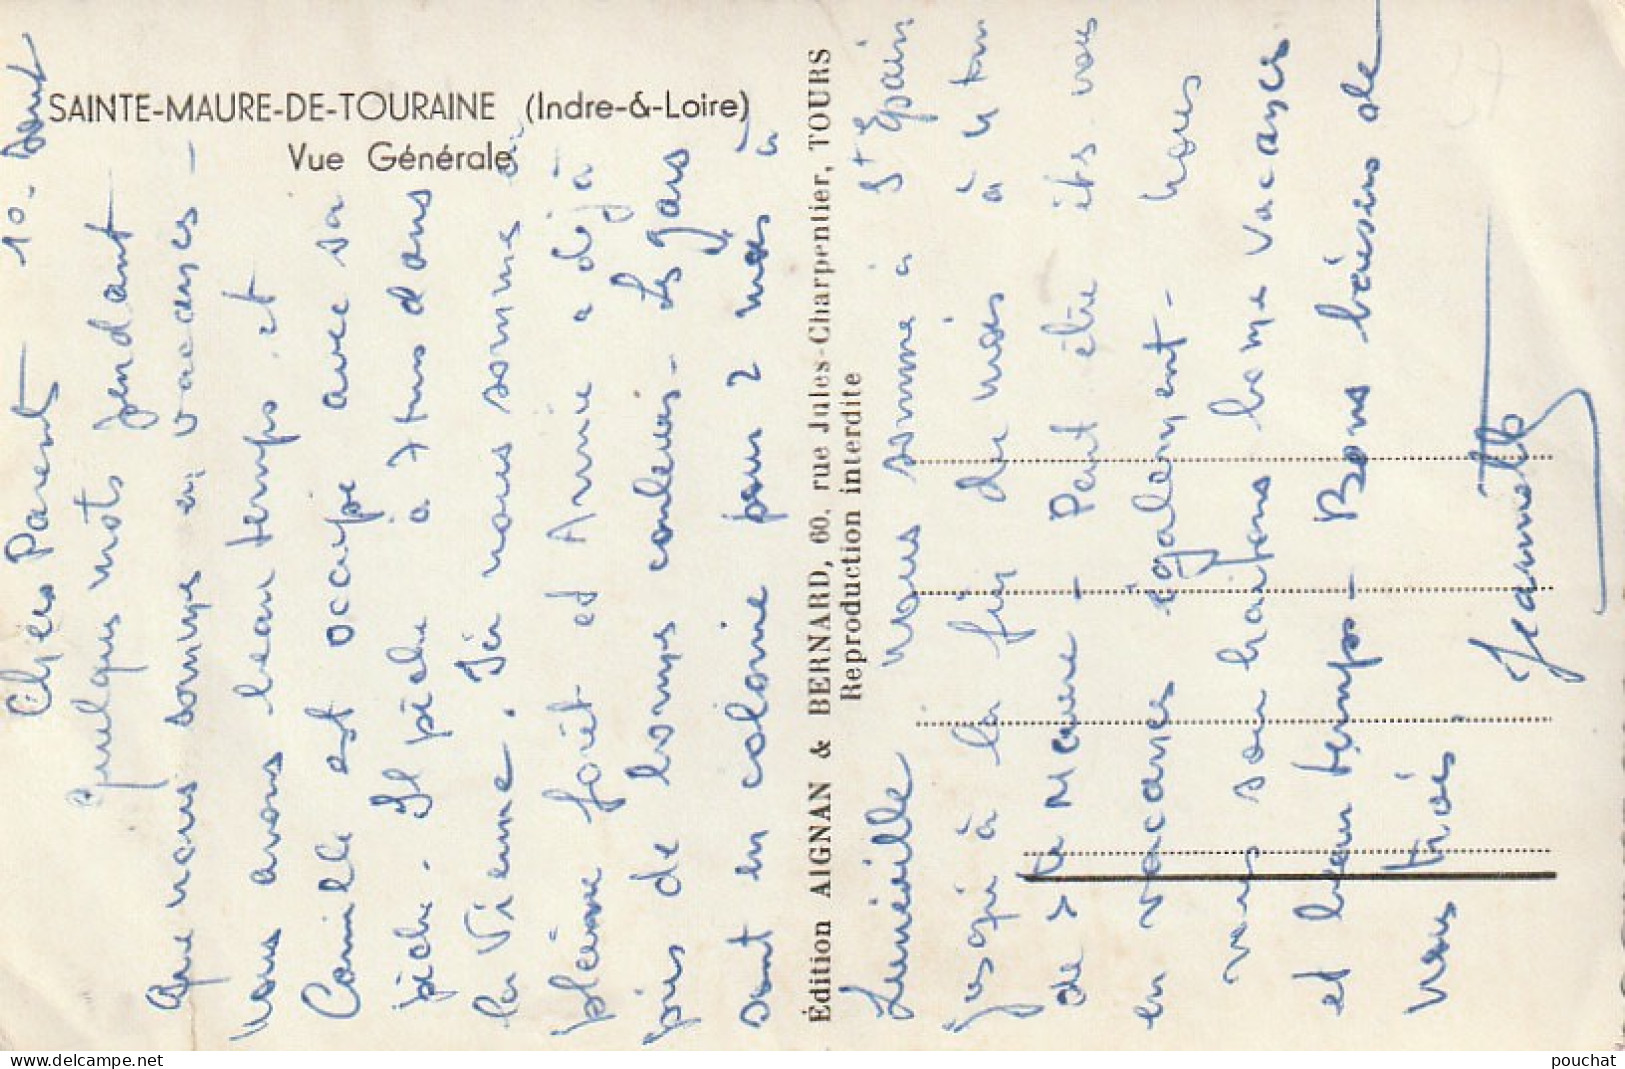 SAINTE-MAURE-DE-TOURAINE (Indre-&-Loire)
Vue Générale
10. Aout
Chers Parents
Quelques mots pendant
que nous somme en vacances -
nous avons beau temps. et
Camille est occupé avec sa
pèche. Il pèche à 7 dans
la Vienne. Ici nous somme en
pleine forêt et Annie a déjà
pris de bonnes couleurs - Les gars
sont en colonie pour 2 mois à
Édition AIGNAN & BERNARD, 60, rue Jules-Charpentier, TOURS
Reproduction interdite
Lunéville nous somme à St Epain
jusqu'à la fin du mois à 4 km
de Ste Maure - Peut être êts vous
en vacances également - nous
vous souhaitons bonne vacances
et beau temps - Bons baisers de
nous trois.
Jeannette
pouchat